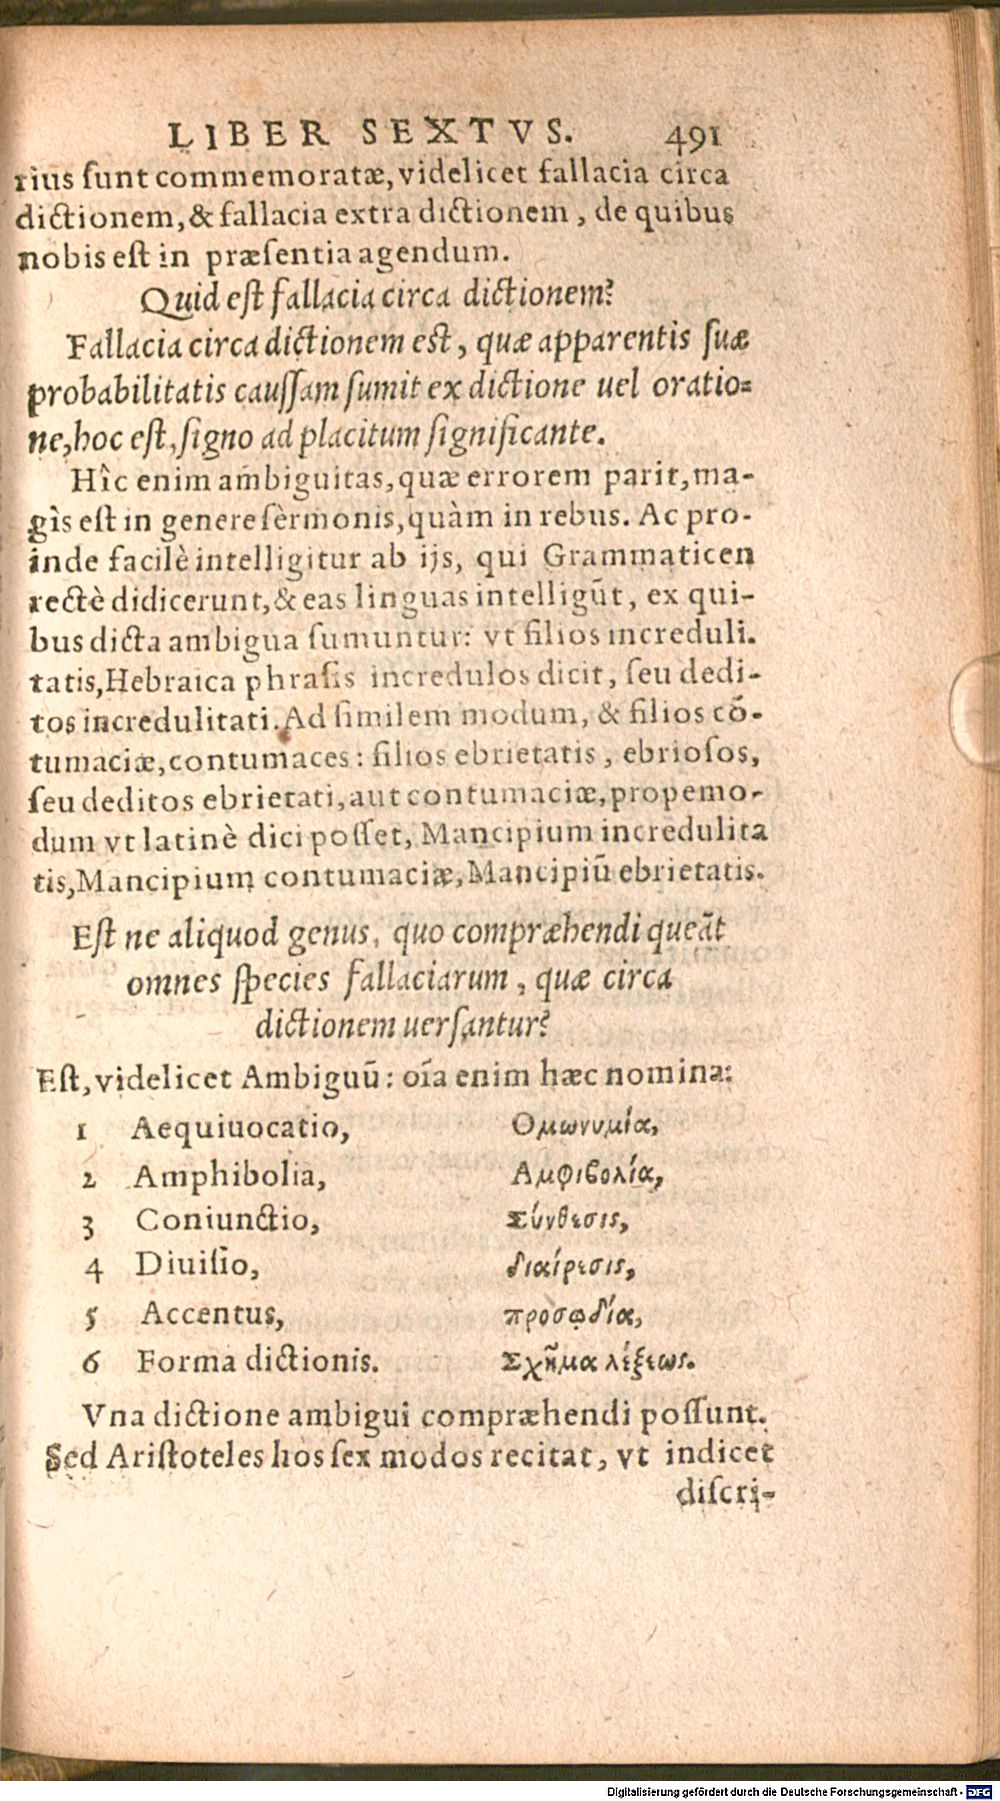 LIBER SEXTVS. 491
rius sunt commemoratæ, videlicet fallacia circa
dictionem, & fallacia extra dictionem, de quibus
nobis est in præsentia agendum.
Quid est fallacia circa dictionem?
Fallacia circa dictionem est, quæ apparentis suæ
probabilitatis caussam sumit ex dictione uel oratio=
ne, hoc est, signo ad placitum significante.
Hîc enim ambiguitas, quæ errorem parit, ma-
gis est in genere sermonis, quàm in rebus. Ac pro-
inde facilè intelligitur ab ijs, qui Grammaticen
rectè didicerunt, & eas linguas intelligūt, ex qui-
bus dicta ambigua sumuntur: vt filios increduli.
tatis, Hebraica phrasis incredulos dicit, seu dedi-
tos incredulitati. Ad similem modum, & filios cō-
tumaciæ, contumaces: filios ebrietatis, ebriosos,
seu deditos ebrietati, aut contumaciæ, propemo-
dum vt latinè dici posset, Mancipium incredulita
tis, Mancipium contumaciæ, Mancipiū ebrietatis.
Est ne aliquod genus, quo compræhendi queāt
omnes species fallaciarum, quæ circa
dictionem uersantur?
Est, videlicet Ambiguū: oīa enim hæc nomina:
1 Aequiuocatio, Ομωνυμία,
2 Amphibolia, Αμφιβολία,
3 Coniunctio, Σύνθεσις,
4 Diuisio, διαίρεσις,
5 Accentus, προσῳδία,
6 Forma dictionis. Σχῆμα λέξεως.
Vna dictione ambigui compræhendi possunt.
Sed Aristoteles hos sex modos recitat, vt indicet
discri-
Digitalisierung gefördert durch die Deutsche Forschungsgemeinschaft - DFG